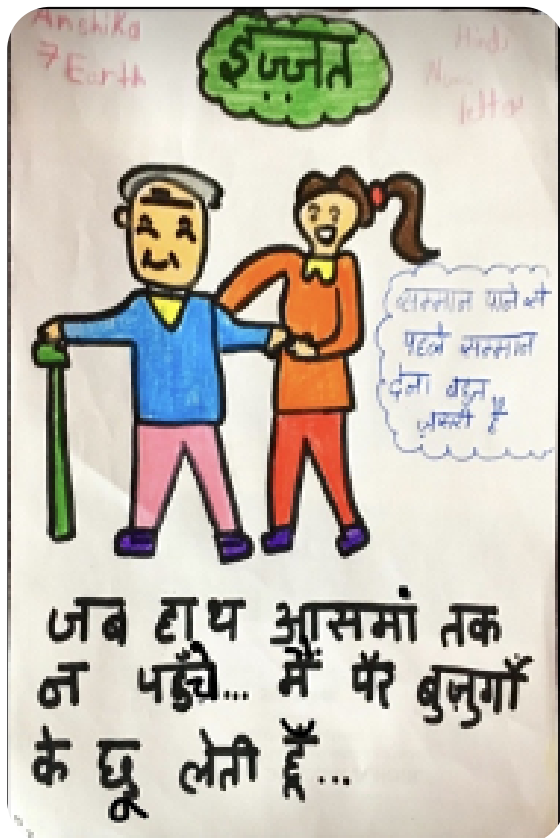 Anshika
7 Earth
इज़्ज़त
Hindi
letter
सम्मान पाने से
पहले सम्मान
देना बहुत
ज़रूरी है
जब हाथ आसमां तक
न पहुँचे... मैं पैर बुज़ुर्गों
के छू लेती हूँ...